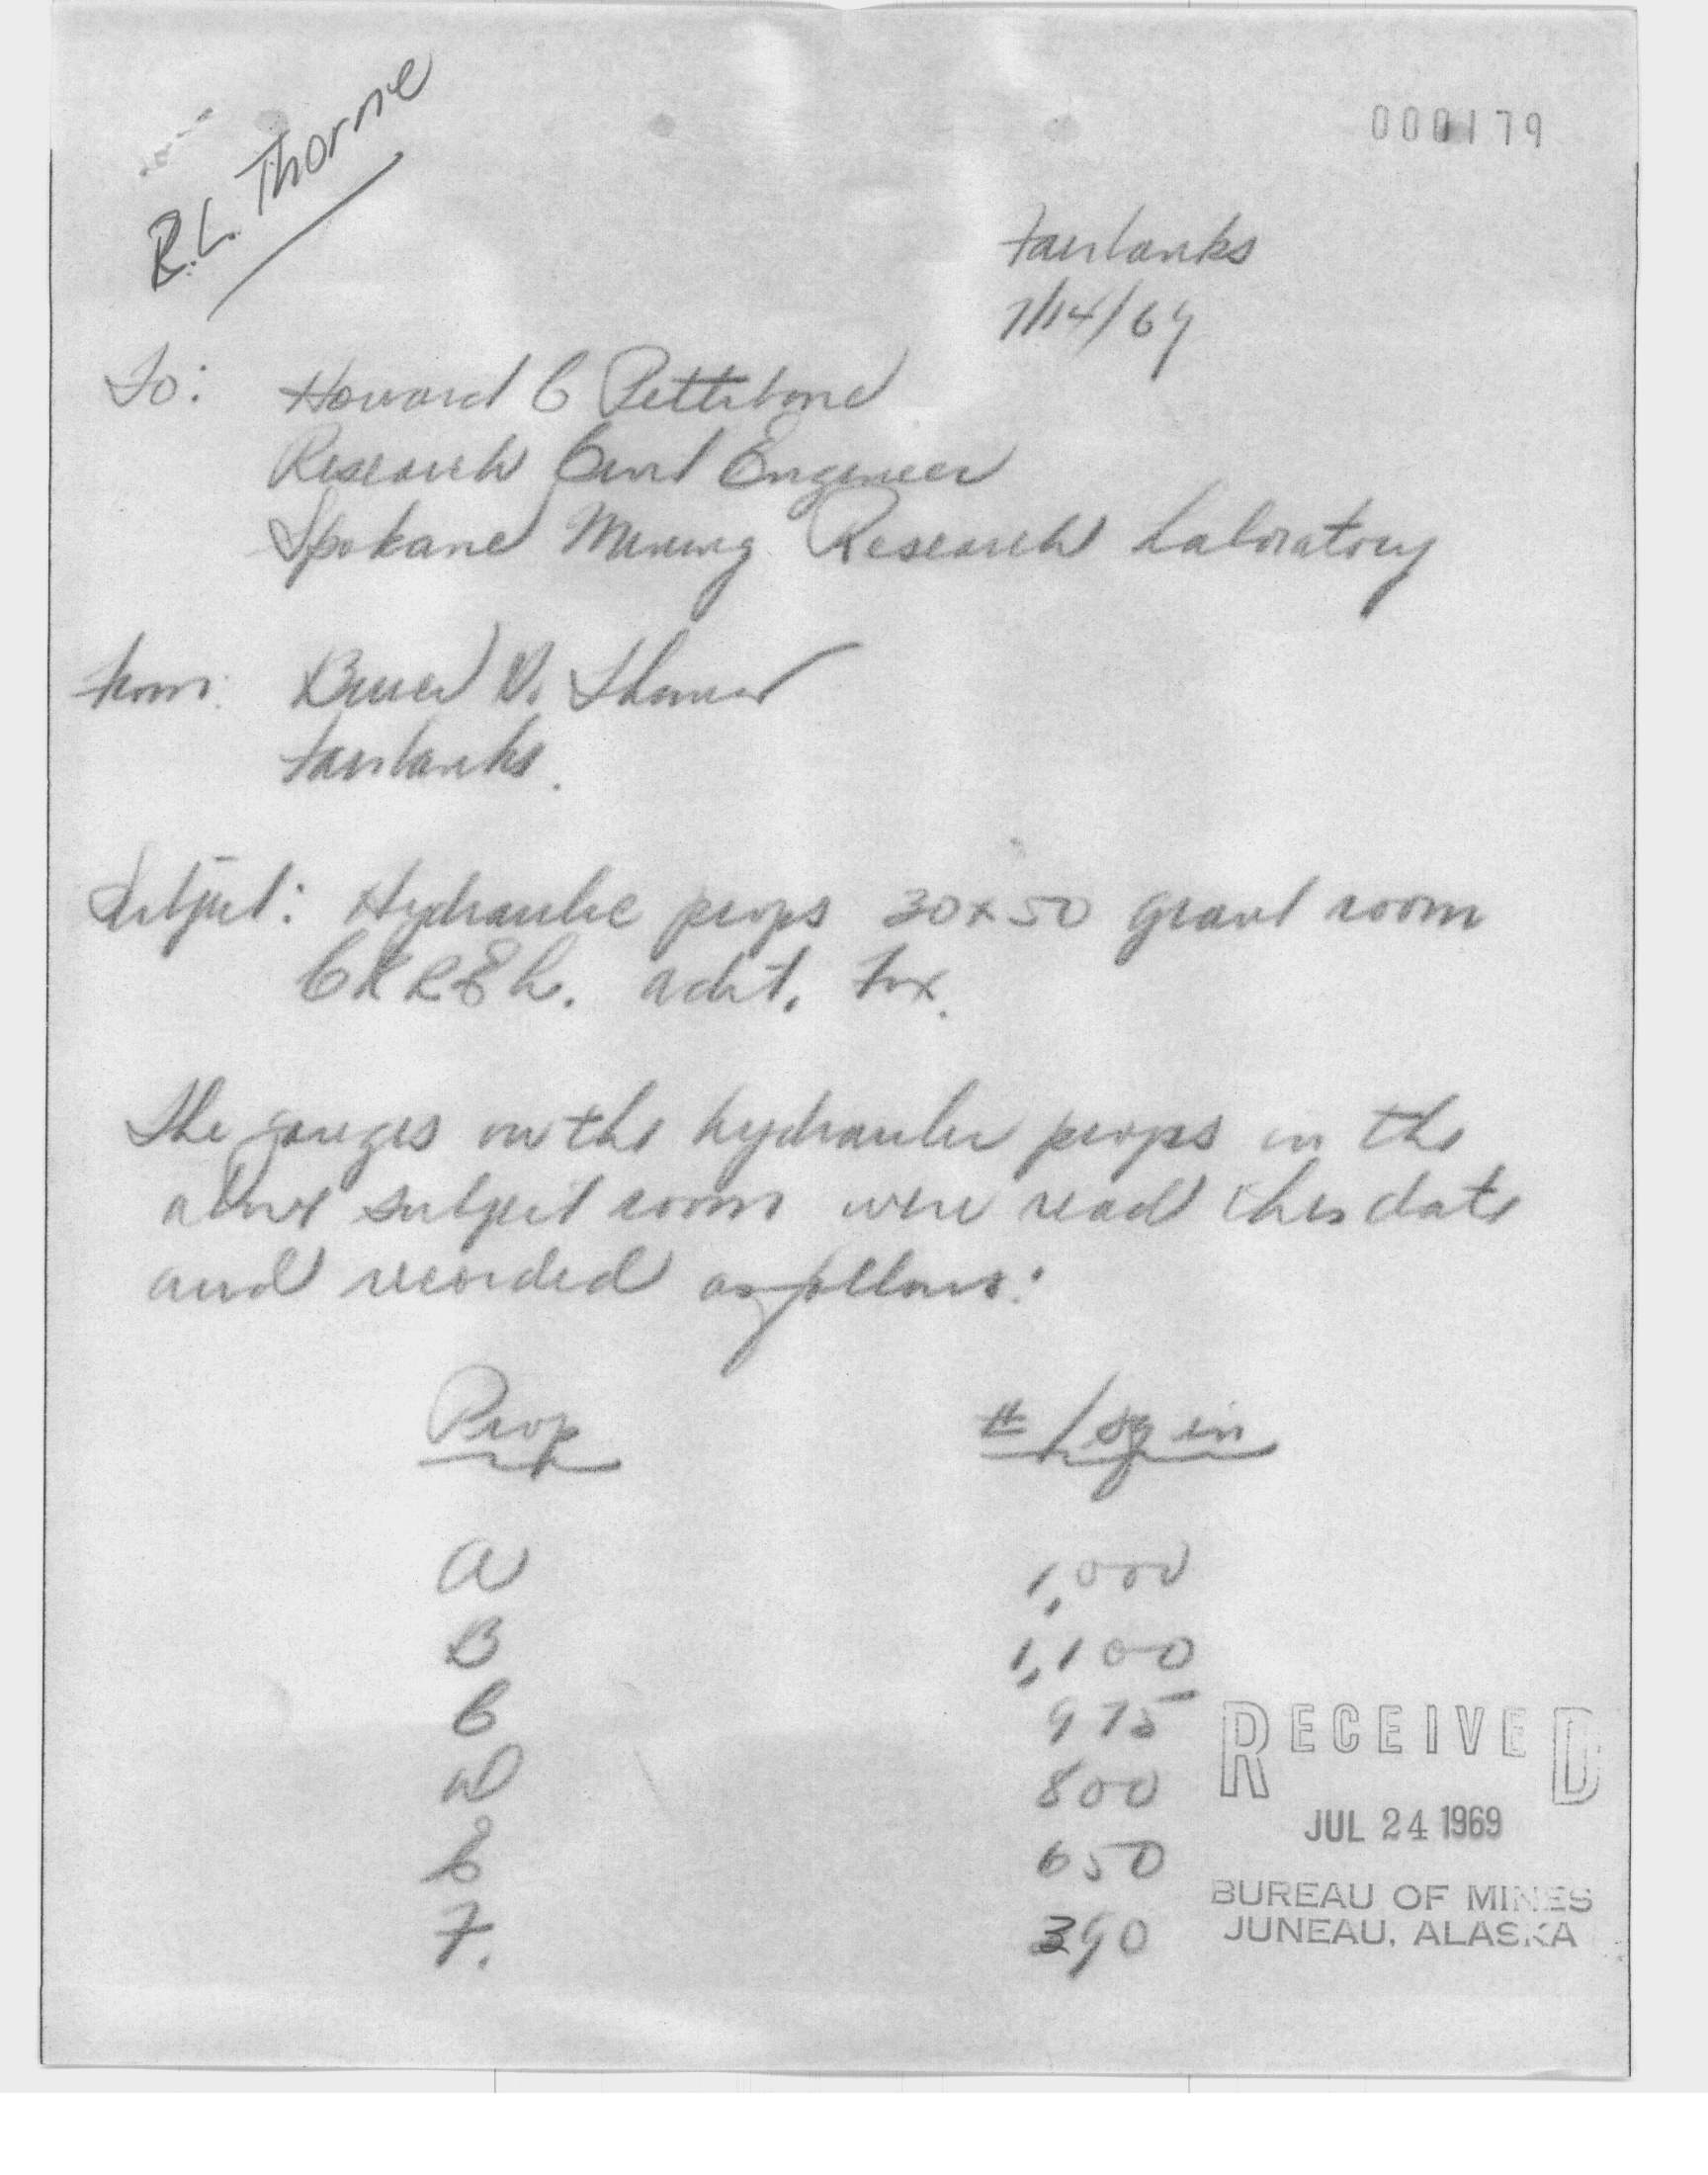 R.L. Thorne
000179
Fairbanks
7/14/69
To: Howard C Pettibone
Research Civil Engineer
Spokane Mining Research Laboratory
From: Bruce D. Thomas
Fairbanks.
Subject: Hydraulic props 30x50 gravel room
CRREL. adit, Fox.
The gauges on the hydraulic props in the
above subject room were read this date
and recorded as follows:
Prop
#/sq in
A 1,000
B 1,100
C 975
D 800
E 650
F. 390
RECEIVED
JUL 24 1969
BUREAU OF MINES
JUNEAU, ALASKA